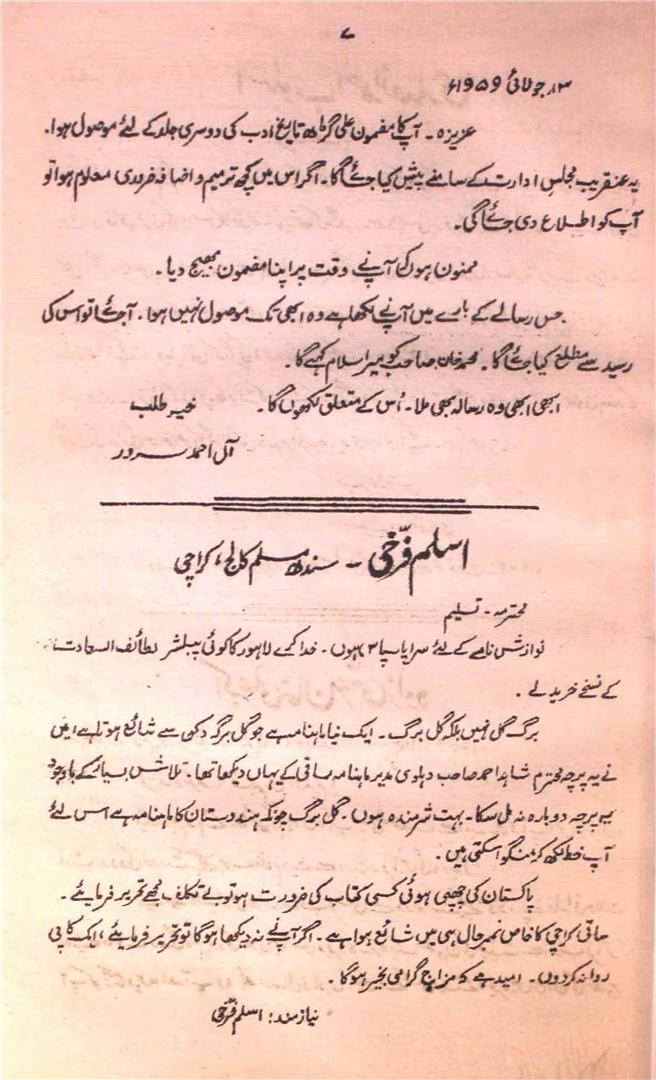 ۷
۱۳؍ جولائی ۱۹۵۹ء
عزیزہ ۔ آپ کا مضمون علی گڑھ تاریخ ادب کی دوسری جلد کے لئے موصول ہوا ۔
یہ عنقریب مجلس ادارت کے سامنے پیش کیا جائے گا ۔ اگر اس میں کچھ ترمیم و اضافہ ضروری معلوم ہوا تو
آپ کو اطلاع دی جائے گی ۔
ممنون ہوں کہ آپ نے وقت پر اپنا مضمون بھیج دیا ۔
جس رسالے کے بارے میں آپ نے لکھا ہے وہ ابھی تک موصول نہیں ہوا ۔ آ جائے تو اس کی
رسید سے مطلع کیا جائے گا ۔ محمد خان صاحب کو میرا سلام کہیے گا ۔
ابھی ابھی وہ رسالہ بھی ملا ۔ اُس کے متعلق لکھوں گا ۔ خیر طلب
آل احمد سرور
اسلم فرّخی ۔ سندھ مسلم کالج ، کراچی
محترمہ ۔ تسلیم
نوازش نامے کے لئے سراپا سپاس ہوں ۔ خدا کرے لاہور کا کوئی پبلشر لطائف السعادت
کے نسخے خرید لے ۔
برگ گل نہیں بلکہ گل برگ ۔ ایک نیا ماہنامہ ہے جو گل برگہ دکن سے شائع ہوتا ہے میں
نے یہ پرچہ محترم شاہد احمد صاحب دہلوی مدیر ماہنامہ ساقی کے یہاں دیکھا تھا ۔ تلاش بسیار کے باوجود
یہ پرچہ دوبارہ نہ مل سکا ۔ بہت شرمندہ ہوں ۔ گل برگ چونکہ ہندوستان کا ماہنامہ ہے اس لئے
آپ خط لکھ کر منگوا سکتی ہیں ۔
پاکستان کی چھپی ہوئی کسی کتاب کی ضرورت ہو تو بے تکلف مجھے تحریر فرمائیے ۔
ساقی کراچی کا خاص نمبر حال ہی میں شائع ہوا ہے ۔ اگر آپ نے نہ دیکھا ہوگا تو تحریر فرمائیے ، ایک کاپی
روانہ کر دوں ۔ امید ہے کہ مزاج گرامی بخیر ہوگا ۔
نیاز مند : اسلم فرّخی